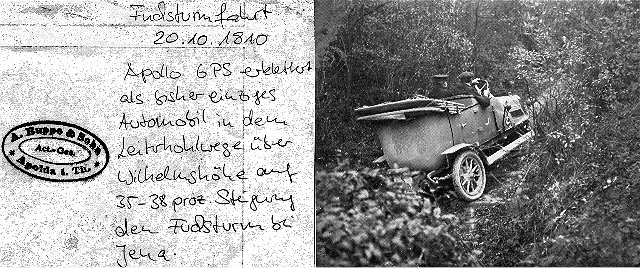 Fuchsturmfahrt
20.10.1910
Apollo GPS erklettert
als bisher einziges
Automobil in dem
Leutrahohlwege über
Wilhelmshöhe auf
35-38 proz Steigung
den Fuchsturm bei
Jena.
A. Ruppe & Sohn
Act.-Ges.
Apolda i. Th.